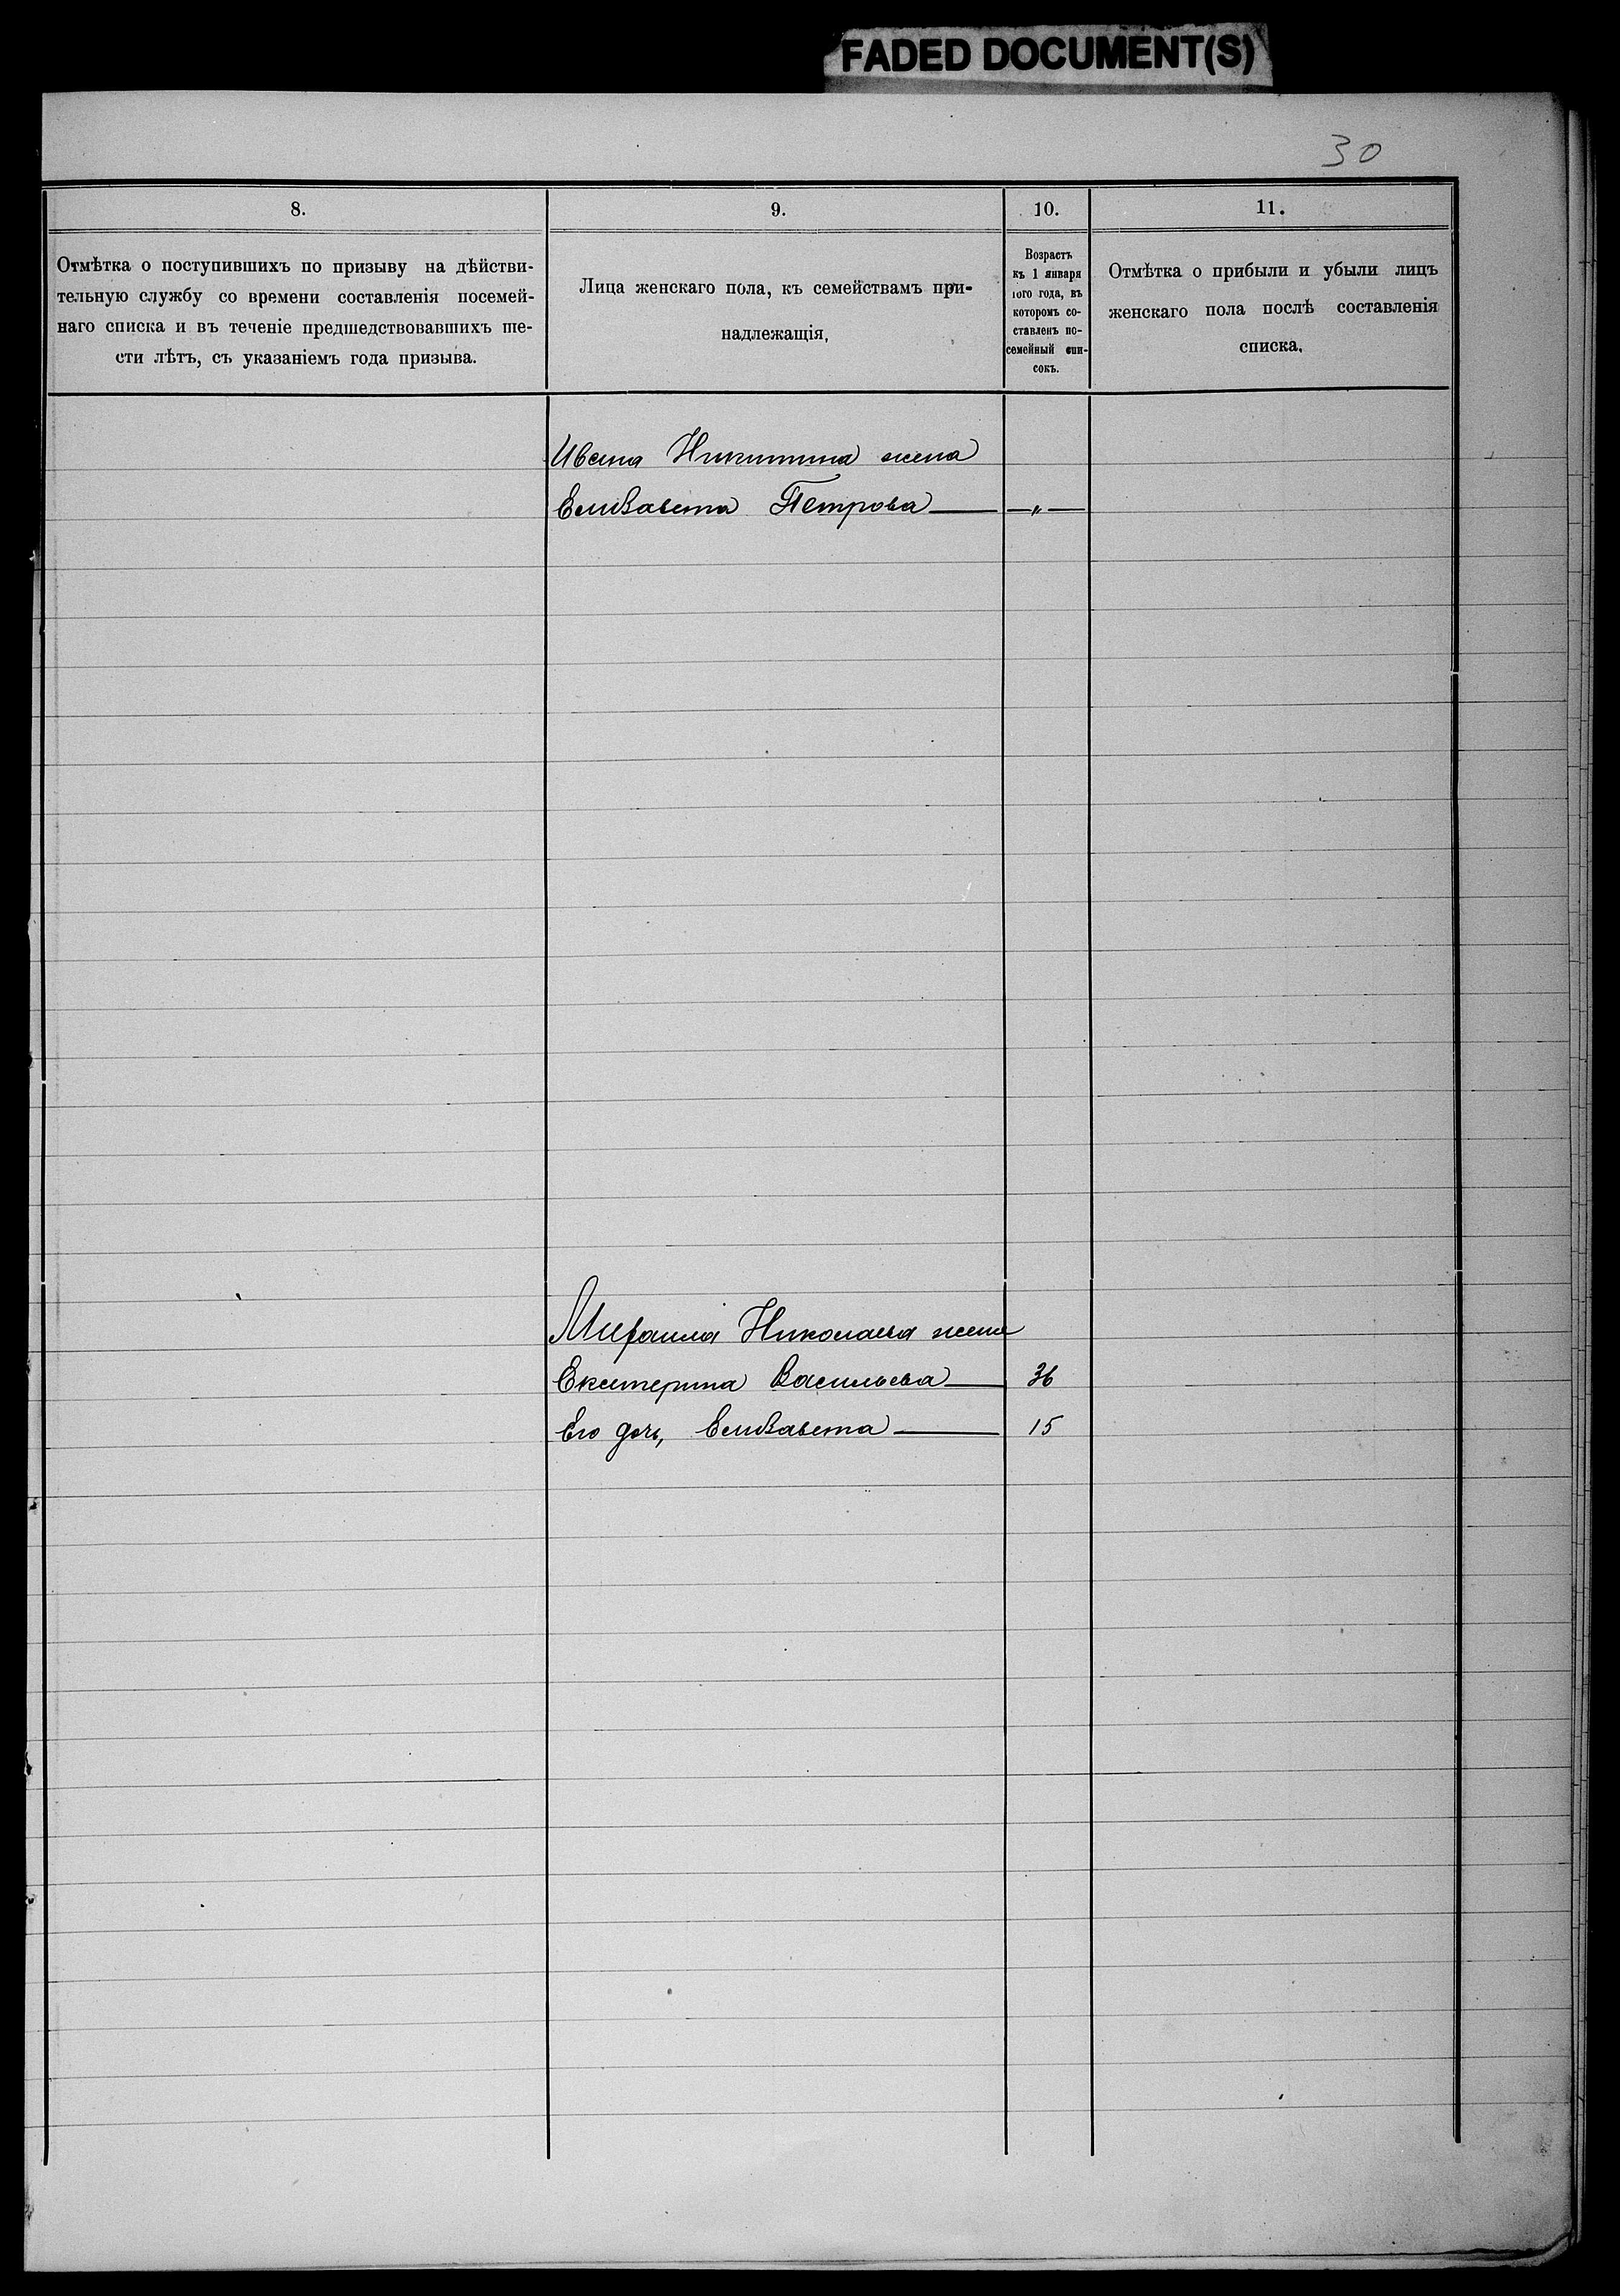 FADED DOCUMENT(S)
30
8.
Отмѣтка о поступившихъ по призыву на дѣйстви-
тельную службу со времени составленія посемей-
наго списка и въ теченіе предшедствовавшихъ ше-
сти лѣтъ, съ указаніемъ года призыва.
9.
Лица женскаго пола, къ семействамъ при-
надлежащія,
10.
Возрастъ
къ 1 января
того года, въ
которомъ со-
ставленъ по-
семейный спи-
сокъ.
11.
Отмѣтка о прибыли и убыли лицъ
женскаго пола послѣ составленія
списка.
Ивана Никитина жена
Елизавета Петрова — „ —
Михаила Николаева жена
Екатерина Васильева — 36
Его дочь, Елизавета — 15